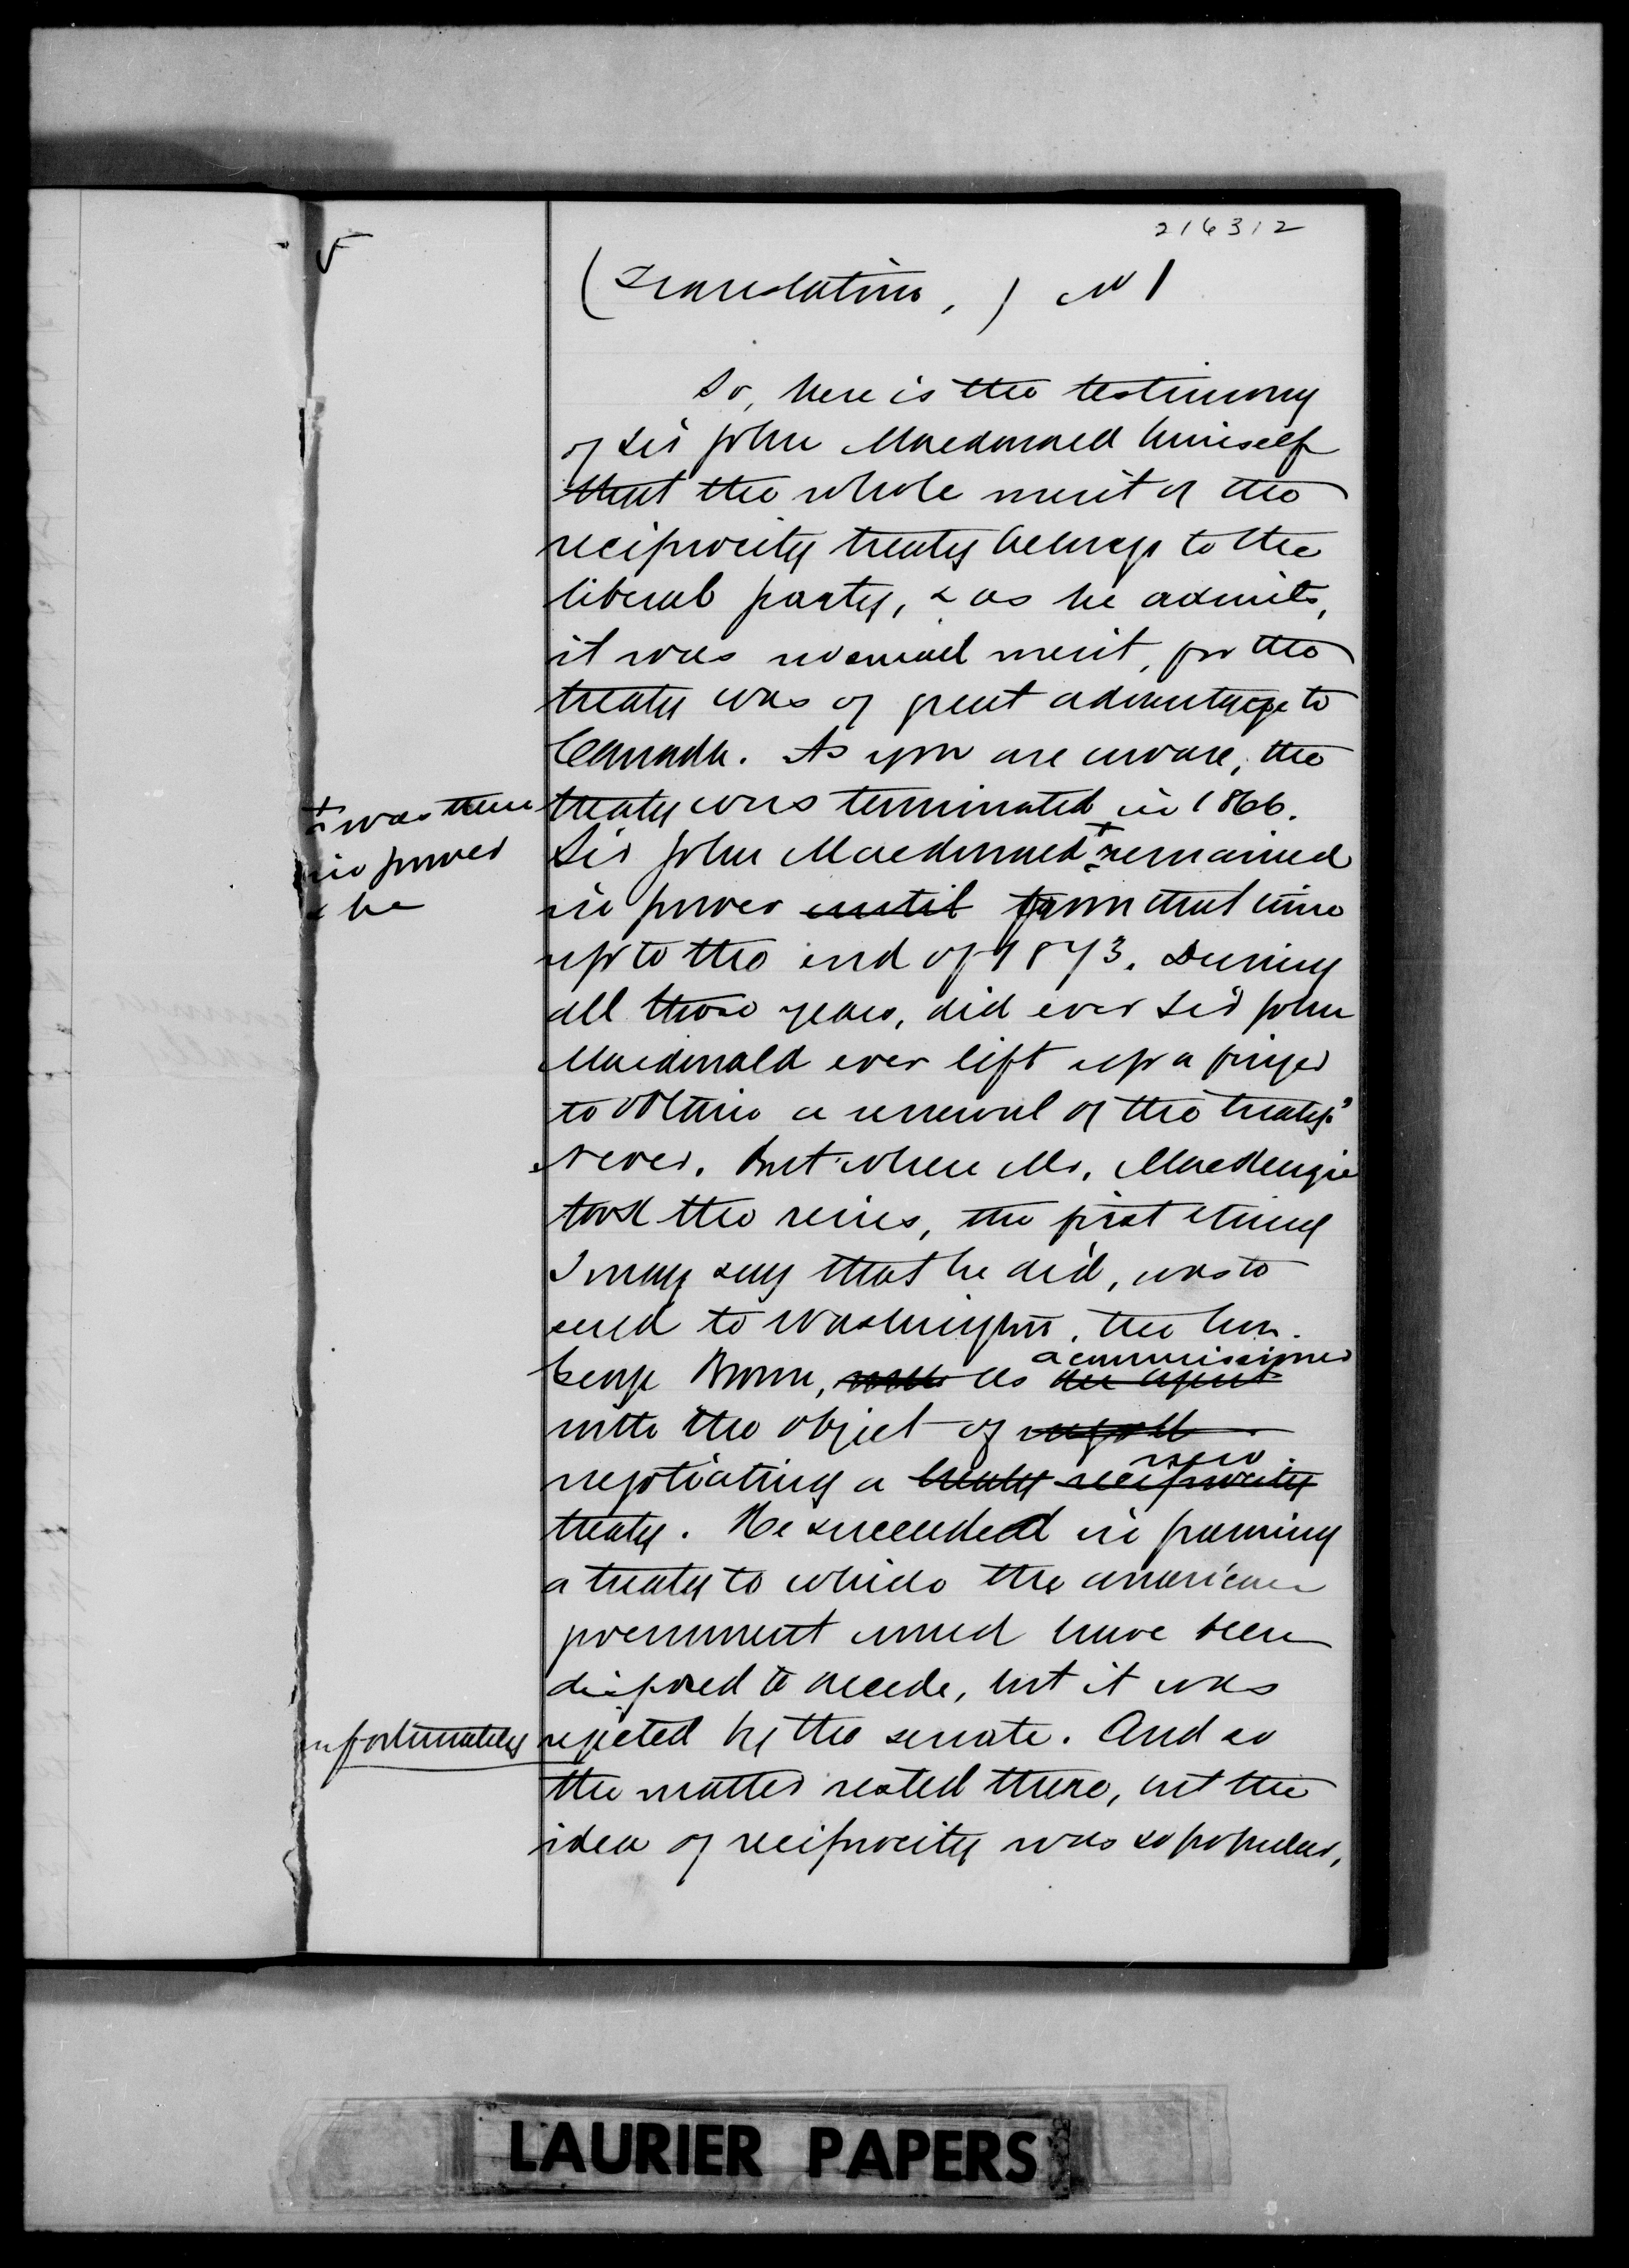 216312
(Translation,) N 1
So, here is the testimony
of Sir John Macdonald himself
that the whole merit of the
reciprocity treaty belongs to the
liberal party, & as he admits,
it was no small merit, for the
treaty was of great advantage to
Canada. As you are aware, the
treaty was terminated in 1866.
+ was then
in power
& he
Sir John Macdonald + remained
in power until from that time
up to the end of 1873. During
all those years, did ever Sir John
Macdonald ever lift up a finger
to obtain a renewal of the treaty?
Never. But when Mr. MacKenzie
took the reins, the first thing
I may say that he did, was to
send to Washington, the hon.
George Brown, as an agent
a commissioner
with the object of
negotiating a treaty reciprocity
new
treaty. He succeeded in framing
a treaty to which the american
government would have been
disposed to accede, but it was
unfortunately rejected by the senate. And so
the matter rested there, but the
idea of reciprocity was so popular,
LAURIER PAPERS